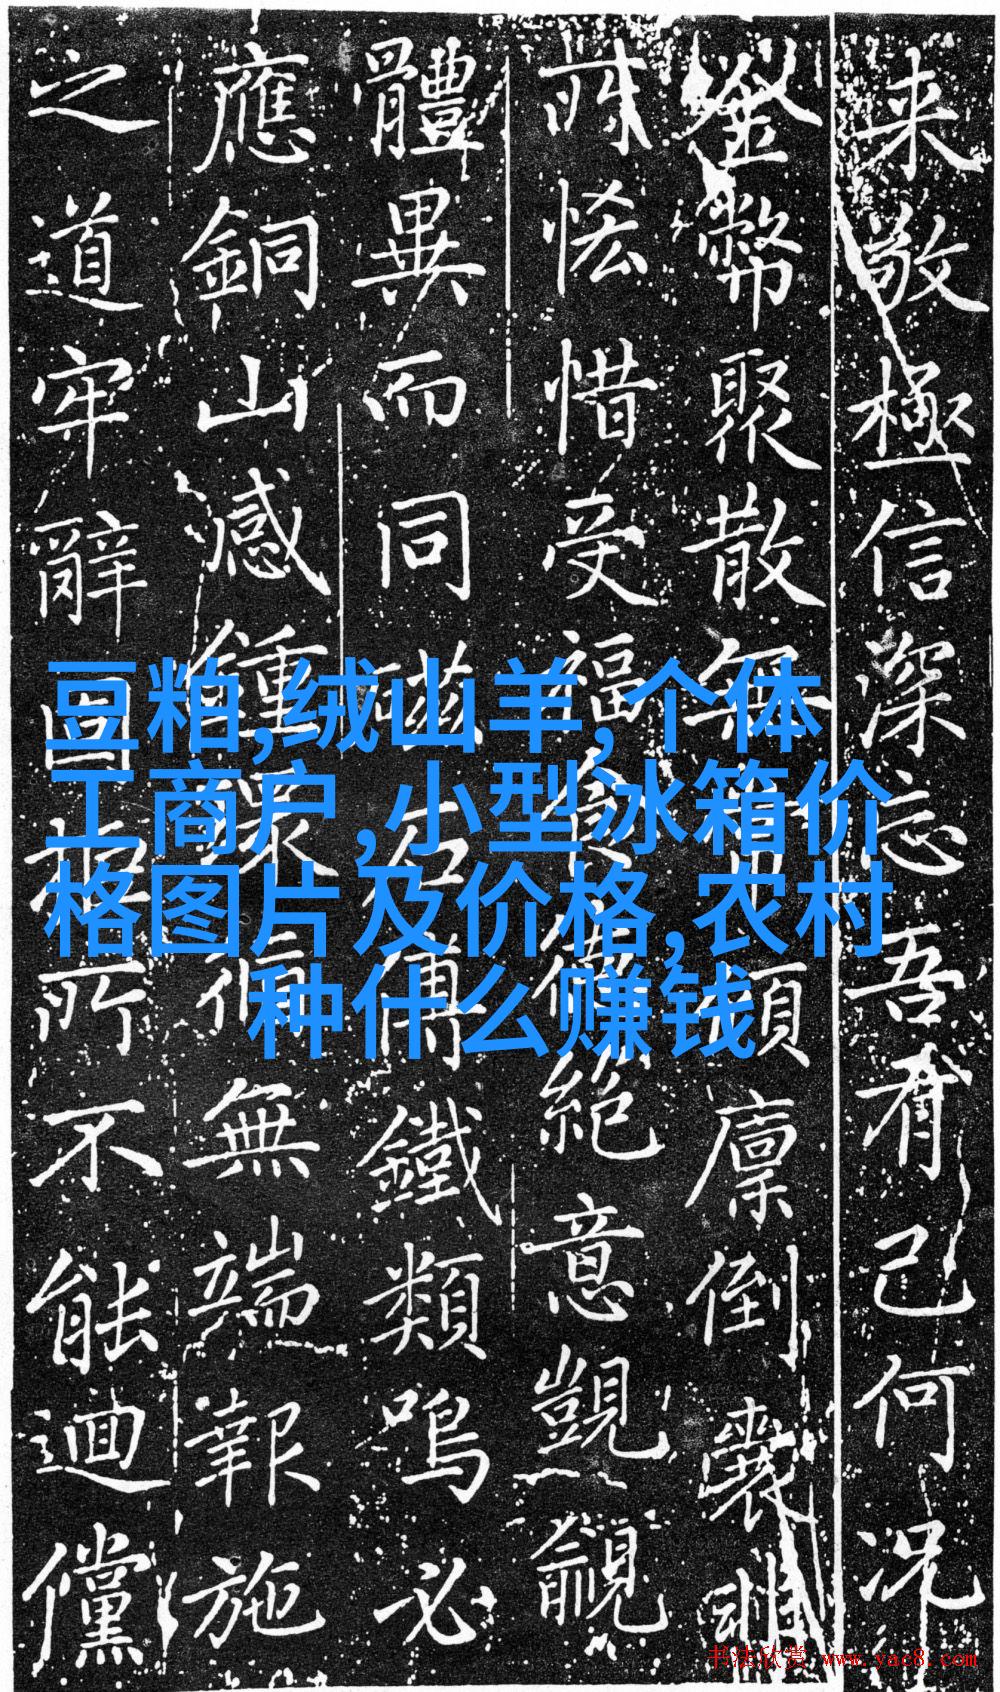 来敬極信深忘吾有己何況
金幣聚散無須廩倒
所恡惜受福絶意覬覦
體異而同磁石傅鐵類鳴必
應銅山感鍾無端報施
之道牢辭固拒所不能迴儻
豆粕,绒山羊,个体
工商户,小型冰箱价
格图片及价格,农村
种什么赚钱
书法欣赏 www.yac8.com